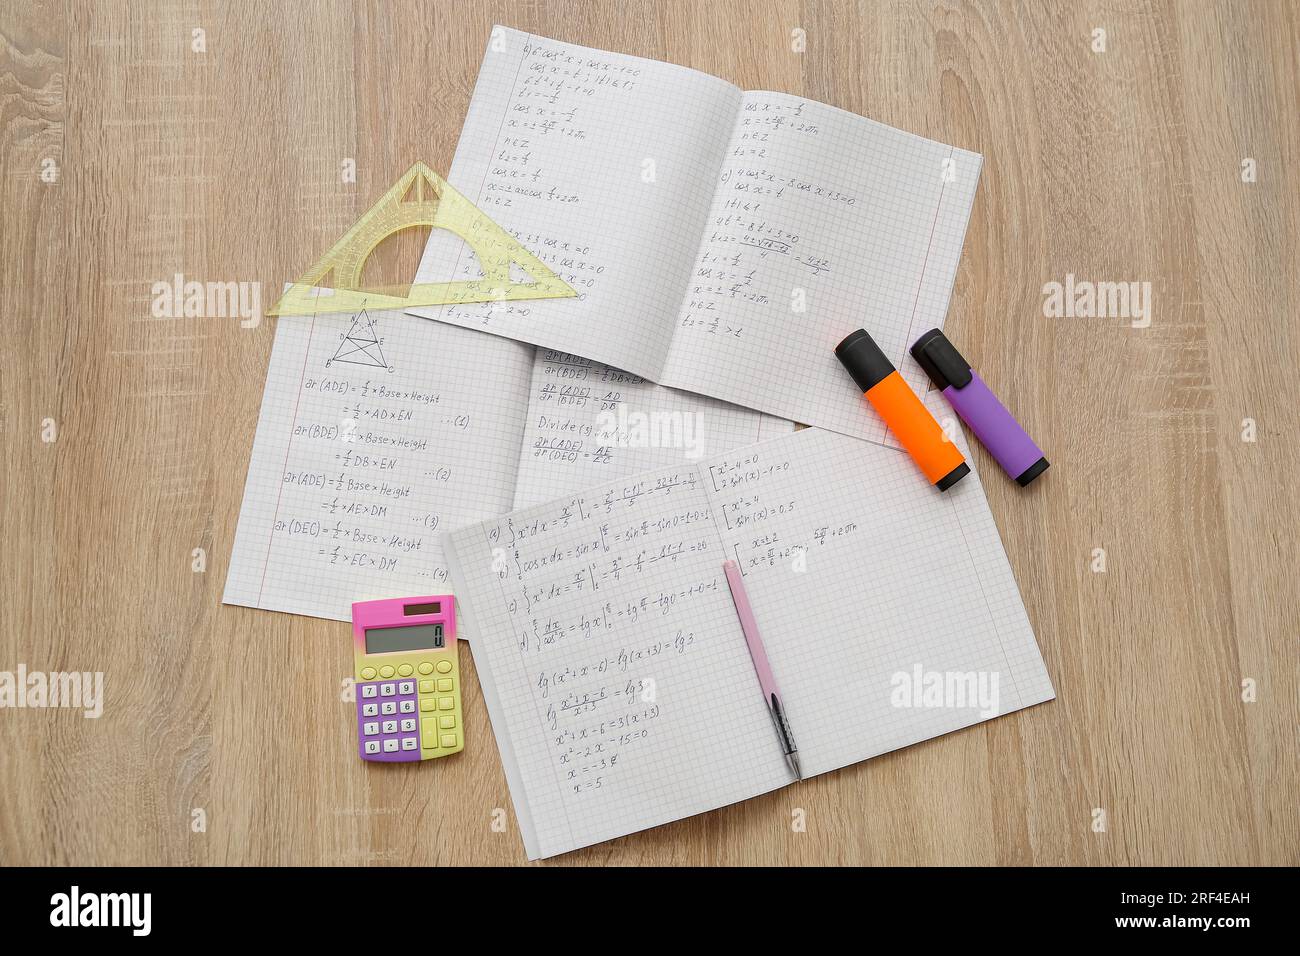 a) 6 cos²x + cos x - 1 = 0
cos x = t ; |t| ≤ 1 ;
6t² + t - 1 = 0
t₁ = - 1/2
cos x = - 1/2
x = ± 2π/3 + 2πn
n ∈ Z
t₂ = 1/3
cos x = 1/3
x = ± arccos 1/3 + 2πn
n ∈ Z
x + 3 cos x = 0
) + 3 cos x = 0
2
t₁ = - 1/2
cos x = - 1/2
x = ± 2π/3 + 2πn
n ∈ Z
t₂ = 2
c) 4 cos²x - 8 cos x + 3 = 0
cos x = t
|t| ≤ 1
4t² - 8t + 3 = 0
t₁,₂ = 4±√16-12 / 4 = 4±2 / 2
t₁ = 1/2
cos x = 1/2
x = ± π/3 + 2πn
n ∈ Z
t₂ = 3/2 > 1
A
N M
D E
B C
ar (ADE) = 1/2 × Base × Height
= 1/2 × AD × EN ...(1)
ar (BDE) = 1/2 × Base × Height
= 1/2 DB × EN ...(2)
ar (ADE) = 1/2 Base × Height
= 1/2 × AE × DM ...(3)
ar (DEC) = 1/2 × Base × Height
= 1/2 × EC × DM ...(4)
ar (ADE)
ar (BDE) = 1/2 DB × EN
ar (ADE) / ar (BDE) = AD / DB
Divide (3)
ar (ADE) / ar (DEC) = AE / EC
a) ∫ x⁴ dx = x⁵/5 | = 2⁵/5 - (-1)⁵/5 = 32+1 / 5 = 33/5
b) ∫ cos x dx = sin x | = sin π/2 - sin 0 = 1-0 = 1
c) ∫ x³ dx = x⁴/4 | = 3⁴/4 - 1⁴/4 = 81-1 / 4 = 20
d) ∫ dx / cos²x = tg x | = tg π/4 - tg 0 = 1-0 = 1
lg (x² + x - 6) - lg (x + 3) = lg 3
lg x² + x - 6 / x + 3 = lg 3
x² + x - 6 = 3 (x + 3)
x² - 2x - 15 = 0
x = -3 ∉
x = 5
x² - 4 = 0
2 sin (x) - 1 = 0
x² = 4
sin (x) = 0,5
x = ± 2
x = π/6 + 2πn, 5π/6 + 2πn
0
7 8 9
4 5 6
1 2 3
0 · =
alamy
Image ID: 2RF4EAH
www.alamy.com